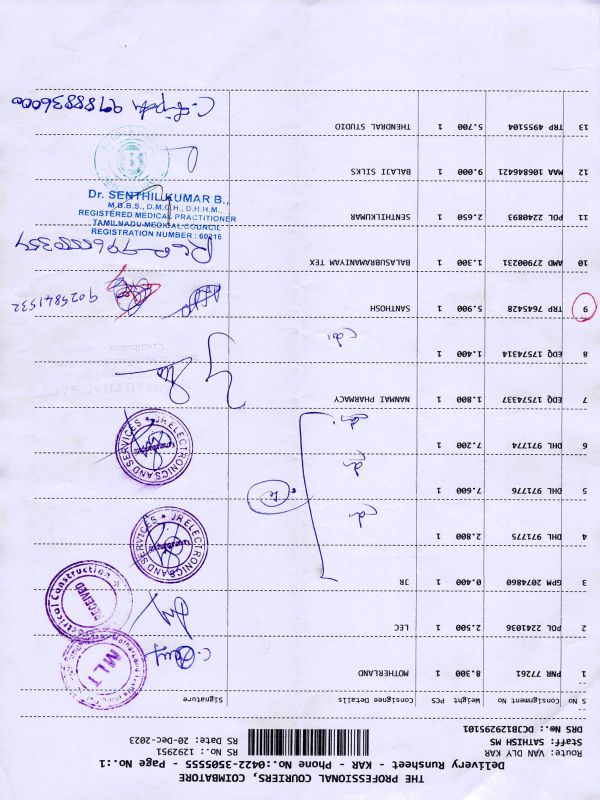 THE PROFESSIONAL COURIERS, COIMBATORE
Delivery Runsheet - KAR - Phone No.:0422-3505555 - Page No.:1
Route: VAN DLY KAR
Staff: SATHISH MS RS No.: 1292951
DRS No.: DCB1292951O1 RS Date: 20-Dec-2023
S No Consignment No Weight PCS Consignee Details Signature
1 PNR 77261 8.300 1 MOTHERLAND
MLT
2 POL 2241036 2.500 1 LEC
RECEIVED
3 GPM 2074860 0.400 1 JR
4 DHL 971775 2.800 1
JR ELECTRONICS AND SERVICES
5 DHL 971776 7.600 1
6 DHL 971774 7.200 1
JR ELECTRONICS AND SERVICES
7 EDQ 17574337 1.800 1 NANMAI PHARMACY
8 EDQ 17574314 1.400 1
9 TRP 7645428 5.900 1 SANTHOSH 9025841532
10 AMD 27900231 1.300 1 BALASUBRAMANIYAM TEX
11 POL 2240893 2.650 1 SENTHILKUMAR
Dr. SENTHILKUMAR B.,
M.B.B.S., D.M.C.H., D.H.H.M.,
REGISTERED MEDICAL PRACTITIONER
TAMILNADU MEDICAL COUNCIL
REGISTRATION NUMBER : 60216
12 MAA 106846421 9.000 1 BALAJI SILKS
13 TRP 4955104 5.700 1 THENDRAL STUDIO
9788836000